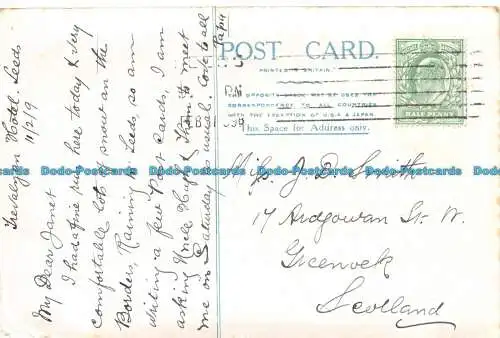 Trevelyan Hotel. Leeds
11/2/9
My Dear Janet
I had a fine run here today & very
comfortable lots of snow on the
Borders, Raining in Leeds, so am
writing a few Post Cards, I am
asking Uncle Hugh & Thom to meet
me on Saturday as usual. Love to all
Papa
POST CARD.
PRINTED IN BRITAIN.
THE OPPOSITE SPACE MAY BE USED FOR
CORRESPONDENCE TO ALL COUNTRIES
WITH THE EXCEPTION OF U.S.A & JAPAN.
This Space for Address only.
HALF PENNY
J. D. Smith
17 Ardgowan St. W.
Greenock
Scotland
Dodo-Postcards Dodo-Postcards Dodo-Postcards Dodo-Postcards